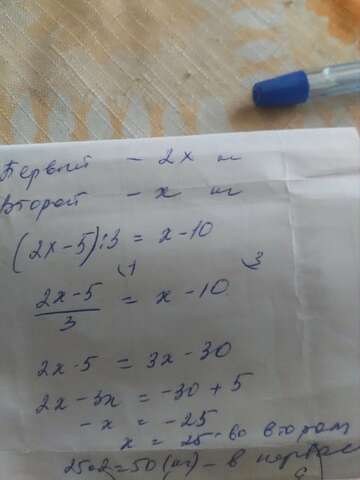 Первый - 2x кг
Второй - x кг
(2x-5):3 = x-10
2x-5 = x-10
3
2x-5 = 3x-30
2x-3x = -30+5
-x = -25
x = 25 - во втором
25·2=50 (кг) - в первом